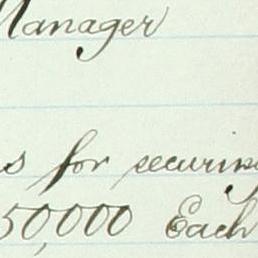 Manager
s for securing
50,000 Each